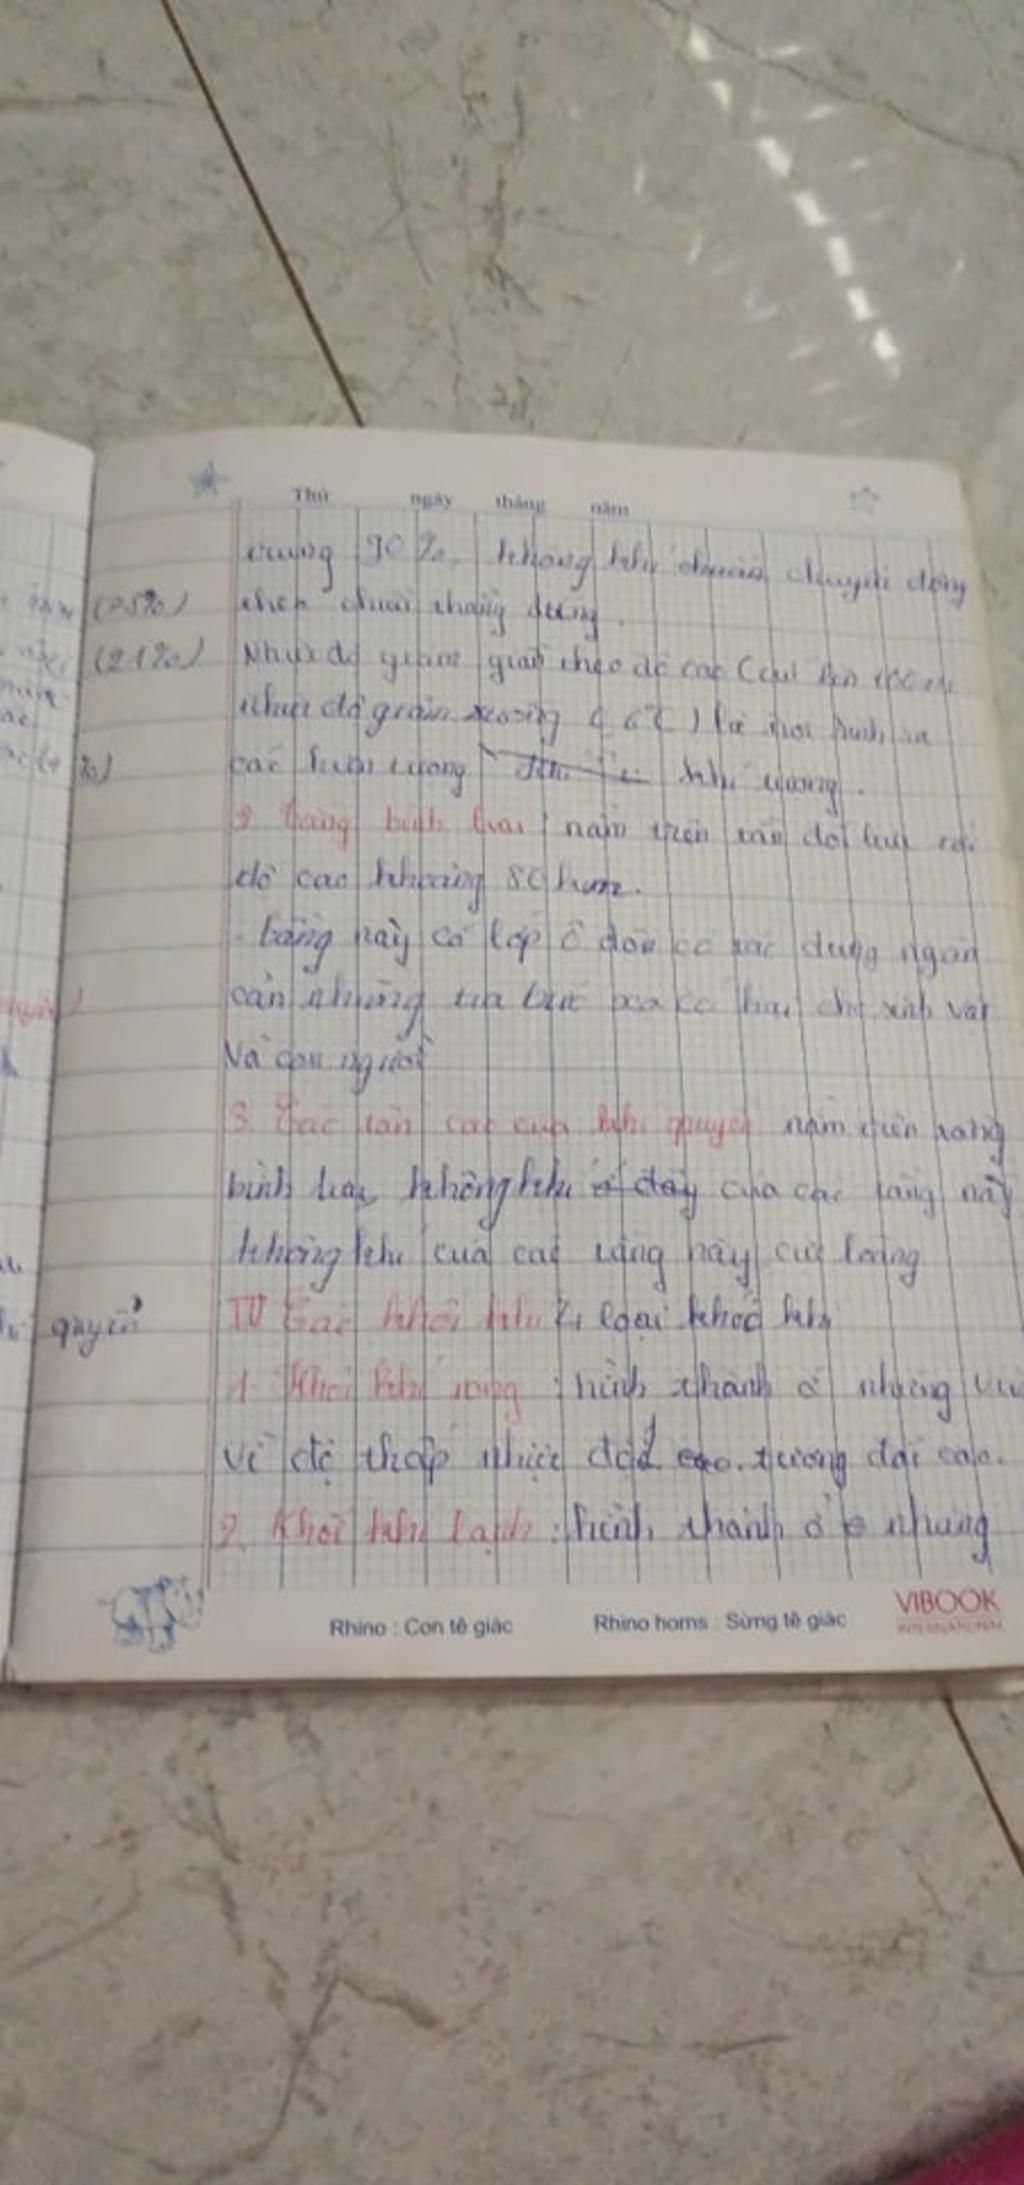 Thứ ngày tháng năm
trung 90%. không khí chuyển động
theo chiều thẳng đứng.
(21%)
Nhiệt độ giảm theo độ cao (cứ lên 100m
nhiệt độ giảm xuống 0,6°C) là nơi sinh ra
các hiện tượng khí tượng.
%)
2 tầng bình lưu nằm trên tầng đối lưu tới
độ cao khoảng 80 km.
- tầng này có lớp ô dôn có tác dụng ngăn
cản những tia bức xạ có hại cho sinh vật
Và con người
3 Các tần cao của khí quyển nằm trên tầng
bình lưu, không khí ở đây của các tầng này
không khí của các tầng này cực loãng
quyển
IV Các khối khí 4 loại khối khí
1. Khối khí nóng : hình thành ở những
vĩ độ thấp nhiệt độ tương đối cao.
2. Khối khí lạnh : hình thành ở những
Rhino : Con tê giác Rhino horns : Sừng tê giác VIBOOK
INTERNATIONAL